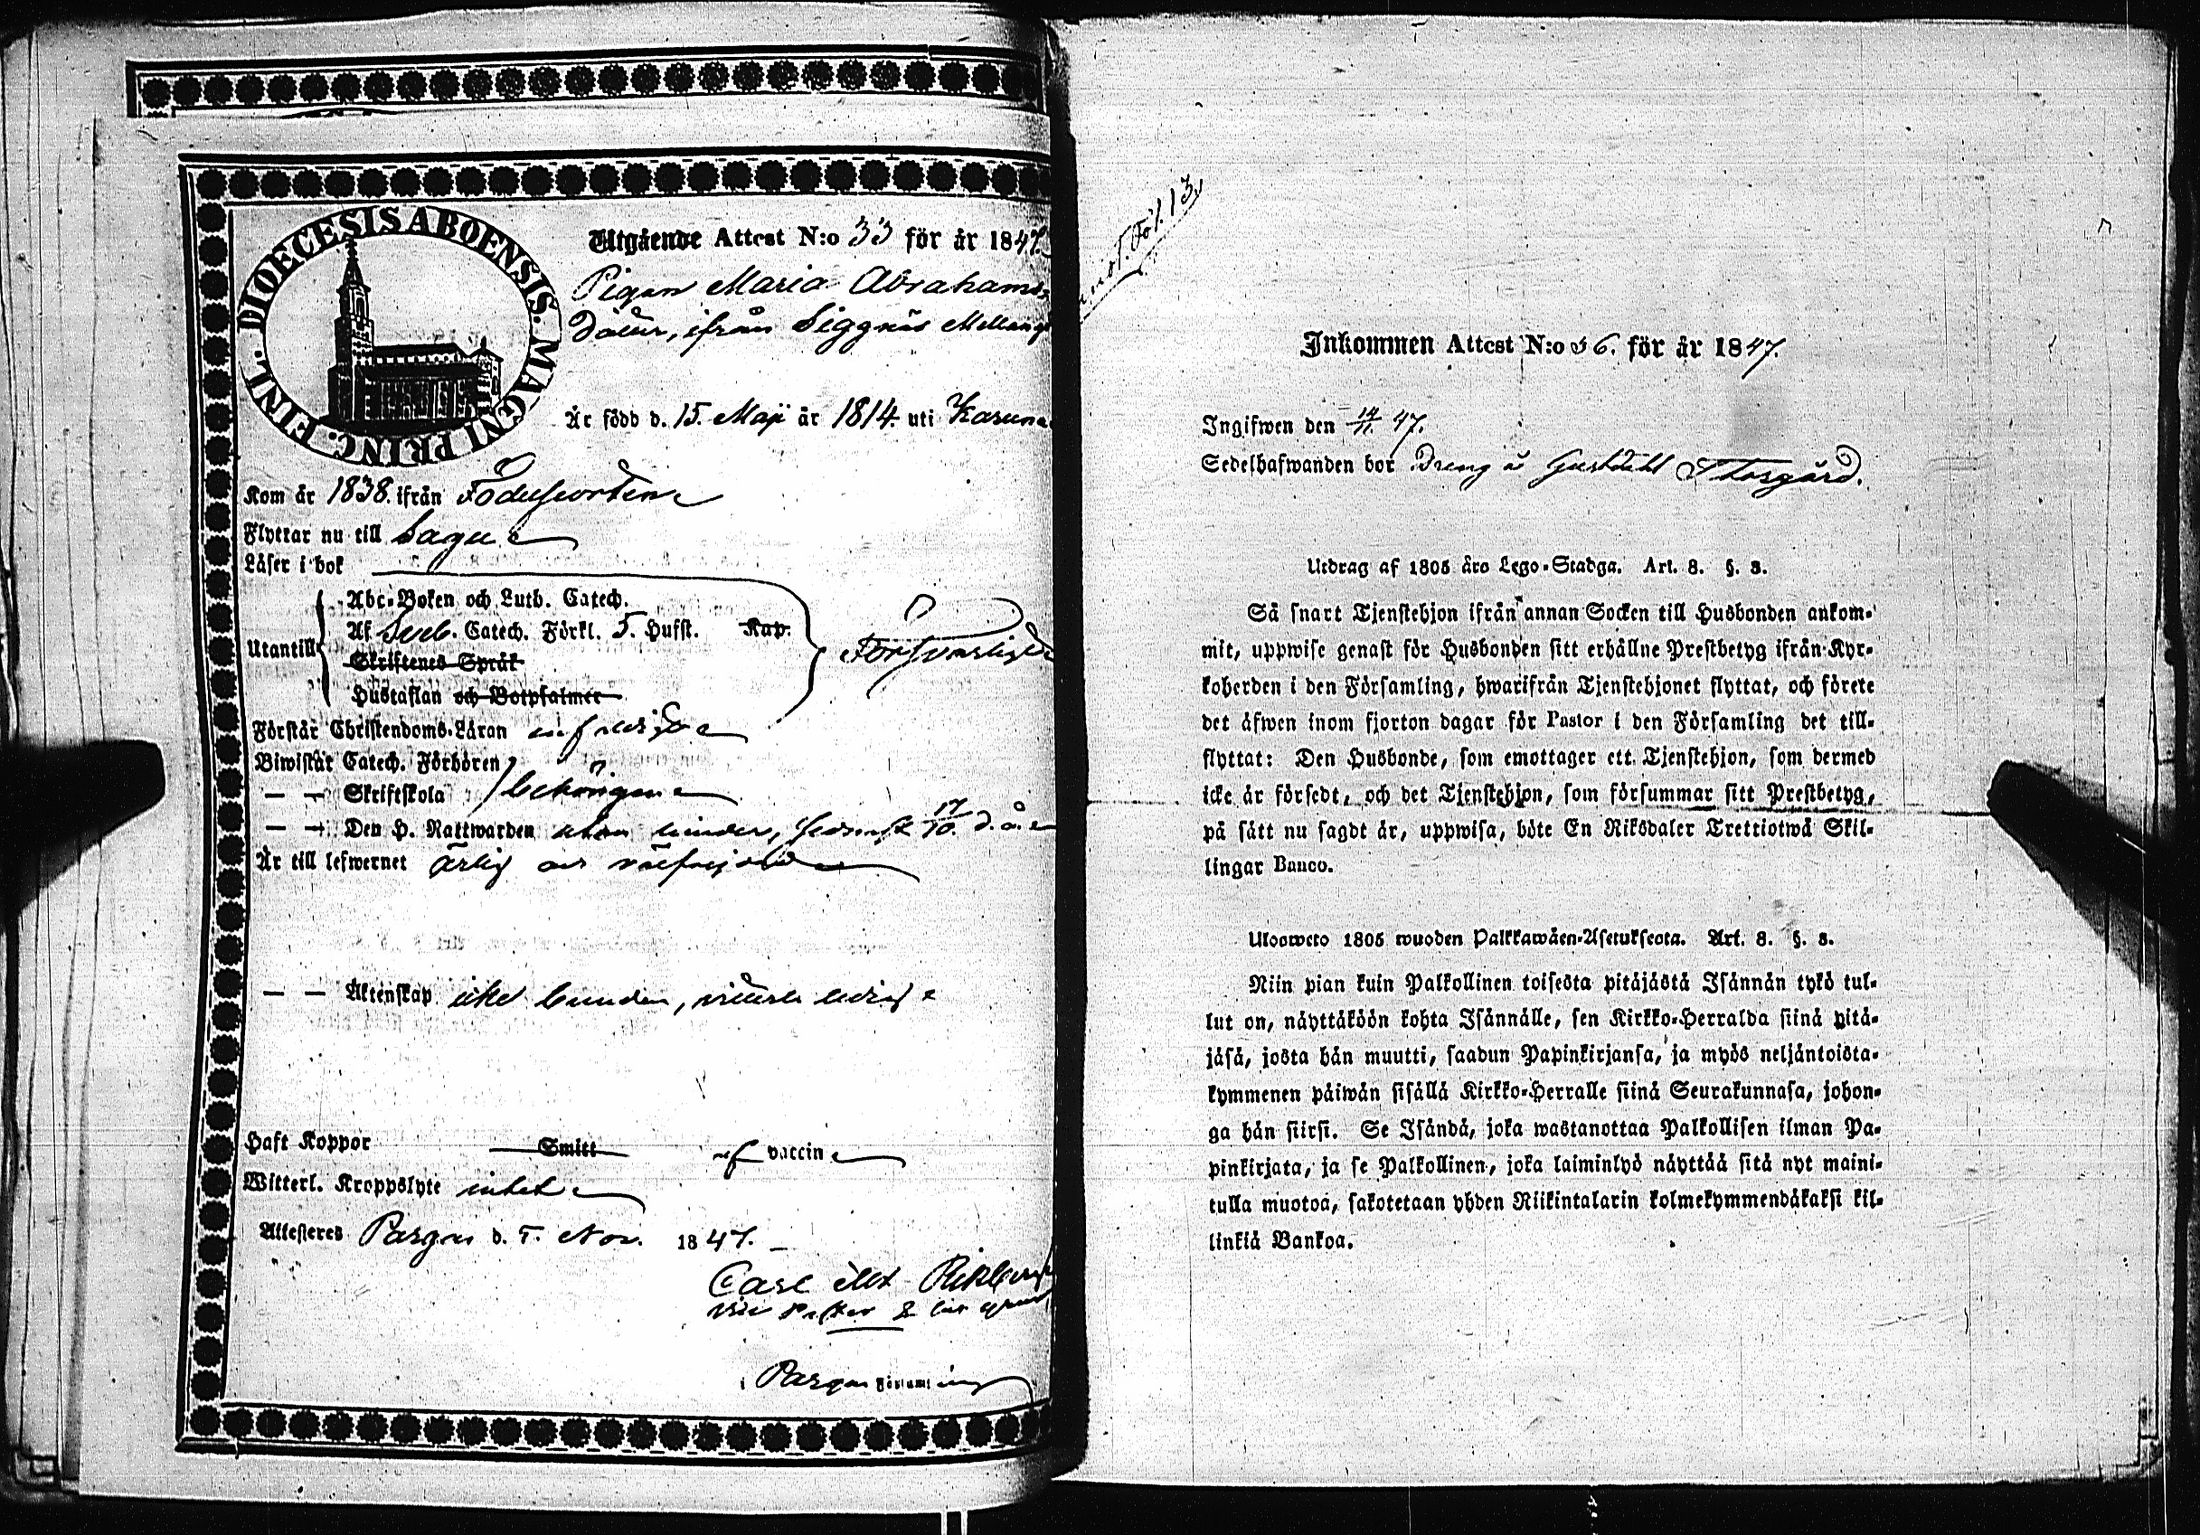 DIOECESIS ABOENSIS. MAGNI PRINC. FINL.
Utgående Attest N:o 33 för år 1847.
Pigan Maria Abrahams-
dotter, ifrån Siggnäs Mellang
Är född d. 15. Maji år 1814. uti Karuna
Kom år 1838. ifrån Födelseorten
Flyttar nu till Sagu
Läser i bok
Abc-Boken och Luth. Catech.
Af Sveb. Catech. Förkl. 5. Hufst. Kap.
Utantill
Skriftenes Språk
Försvarligen
Hustaflan och Botpsalmer
Förstår Christendoms-Läran
Biwistår Catech. Förhören
— — Skriftskola behörigen
— — Den H. Nattwarden utan hinder, sednast 17/10. d. å.
Är till lefwernet ärlig och välfrejdad
— — Äktenskap icke bunden, ledig
Haft Koppor Smitt af vaccin
Witterl. Kroppslyte intet
Attesteres Pargas d. 5. Nov. 1847.
Carl
i Pargas Församling
Fol. 13.
Inkommen Attest N:o 36. för år 1847.
Ingifwen den 14/11. 47.
Sedelhafwanden bor Dreng å Storgård.
Utdrag af 1805 års Lego-Stadga. Art. 8. §. 3.
Så snart Tjenstehjon ifrån annan Socken till Husbonden ankom-
mit, uppwise genast för Husbonden sitt erhållne Prestbetyg ifrån Kyr-
koherden i den Församling, hwarifrån Tjenstehjonet flyttat, och förete
det äfwen inom fjorton dagar för Pastor i den Församling det till-
flyttat: Den Husbonde, som emottager ett Tjenstehjon, som dermed
icke är försedt, och det Tjenstehjon, som försummar sitt Prestbetyg,
på sätt nu sagdt är, uppwisa, böte En Riksdaler Trettiotwå Skil-
lingar Banco.
Ulosweto 1805 wuoden Palkkawäen-Asetuksesta. Art. 8. §. 3.
Niin pian kuin Palkollinen toisesta pitäjästä Isännän tykö tul-
lut on, näyttäköön kohta Isännälle, sen Kirkko-Herralda siinä pitä-
jäsä, josta hän muutti, saadun Papinkirjansa, ja myös neljäntoista-
kymmenen päiwän sisällä Kirkko-Herralle siinä Seurakunnasa, johon-
ga hän siirsi. Se Isändä, joka wastanottaa Palkollisen ilman Pa-
pinkirjata, ja se Palkollinen, joka laiminlyö näyttää sitä nyt maini-
tulla muotoa, sakotetaan yhden Riikintalarin kolmekymmendäkaksi kil-
linkiä Bankoa.